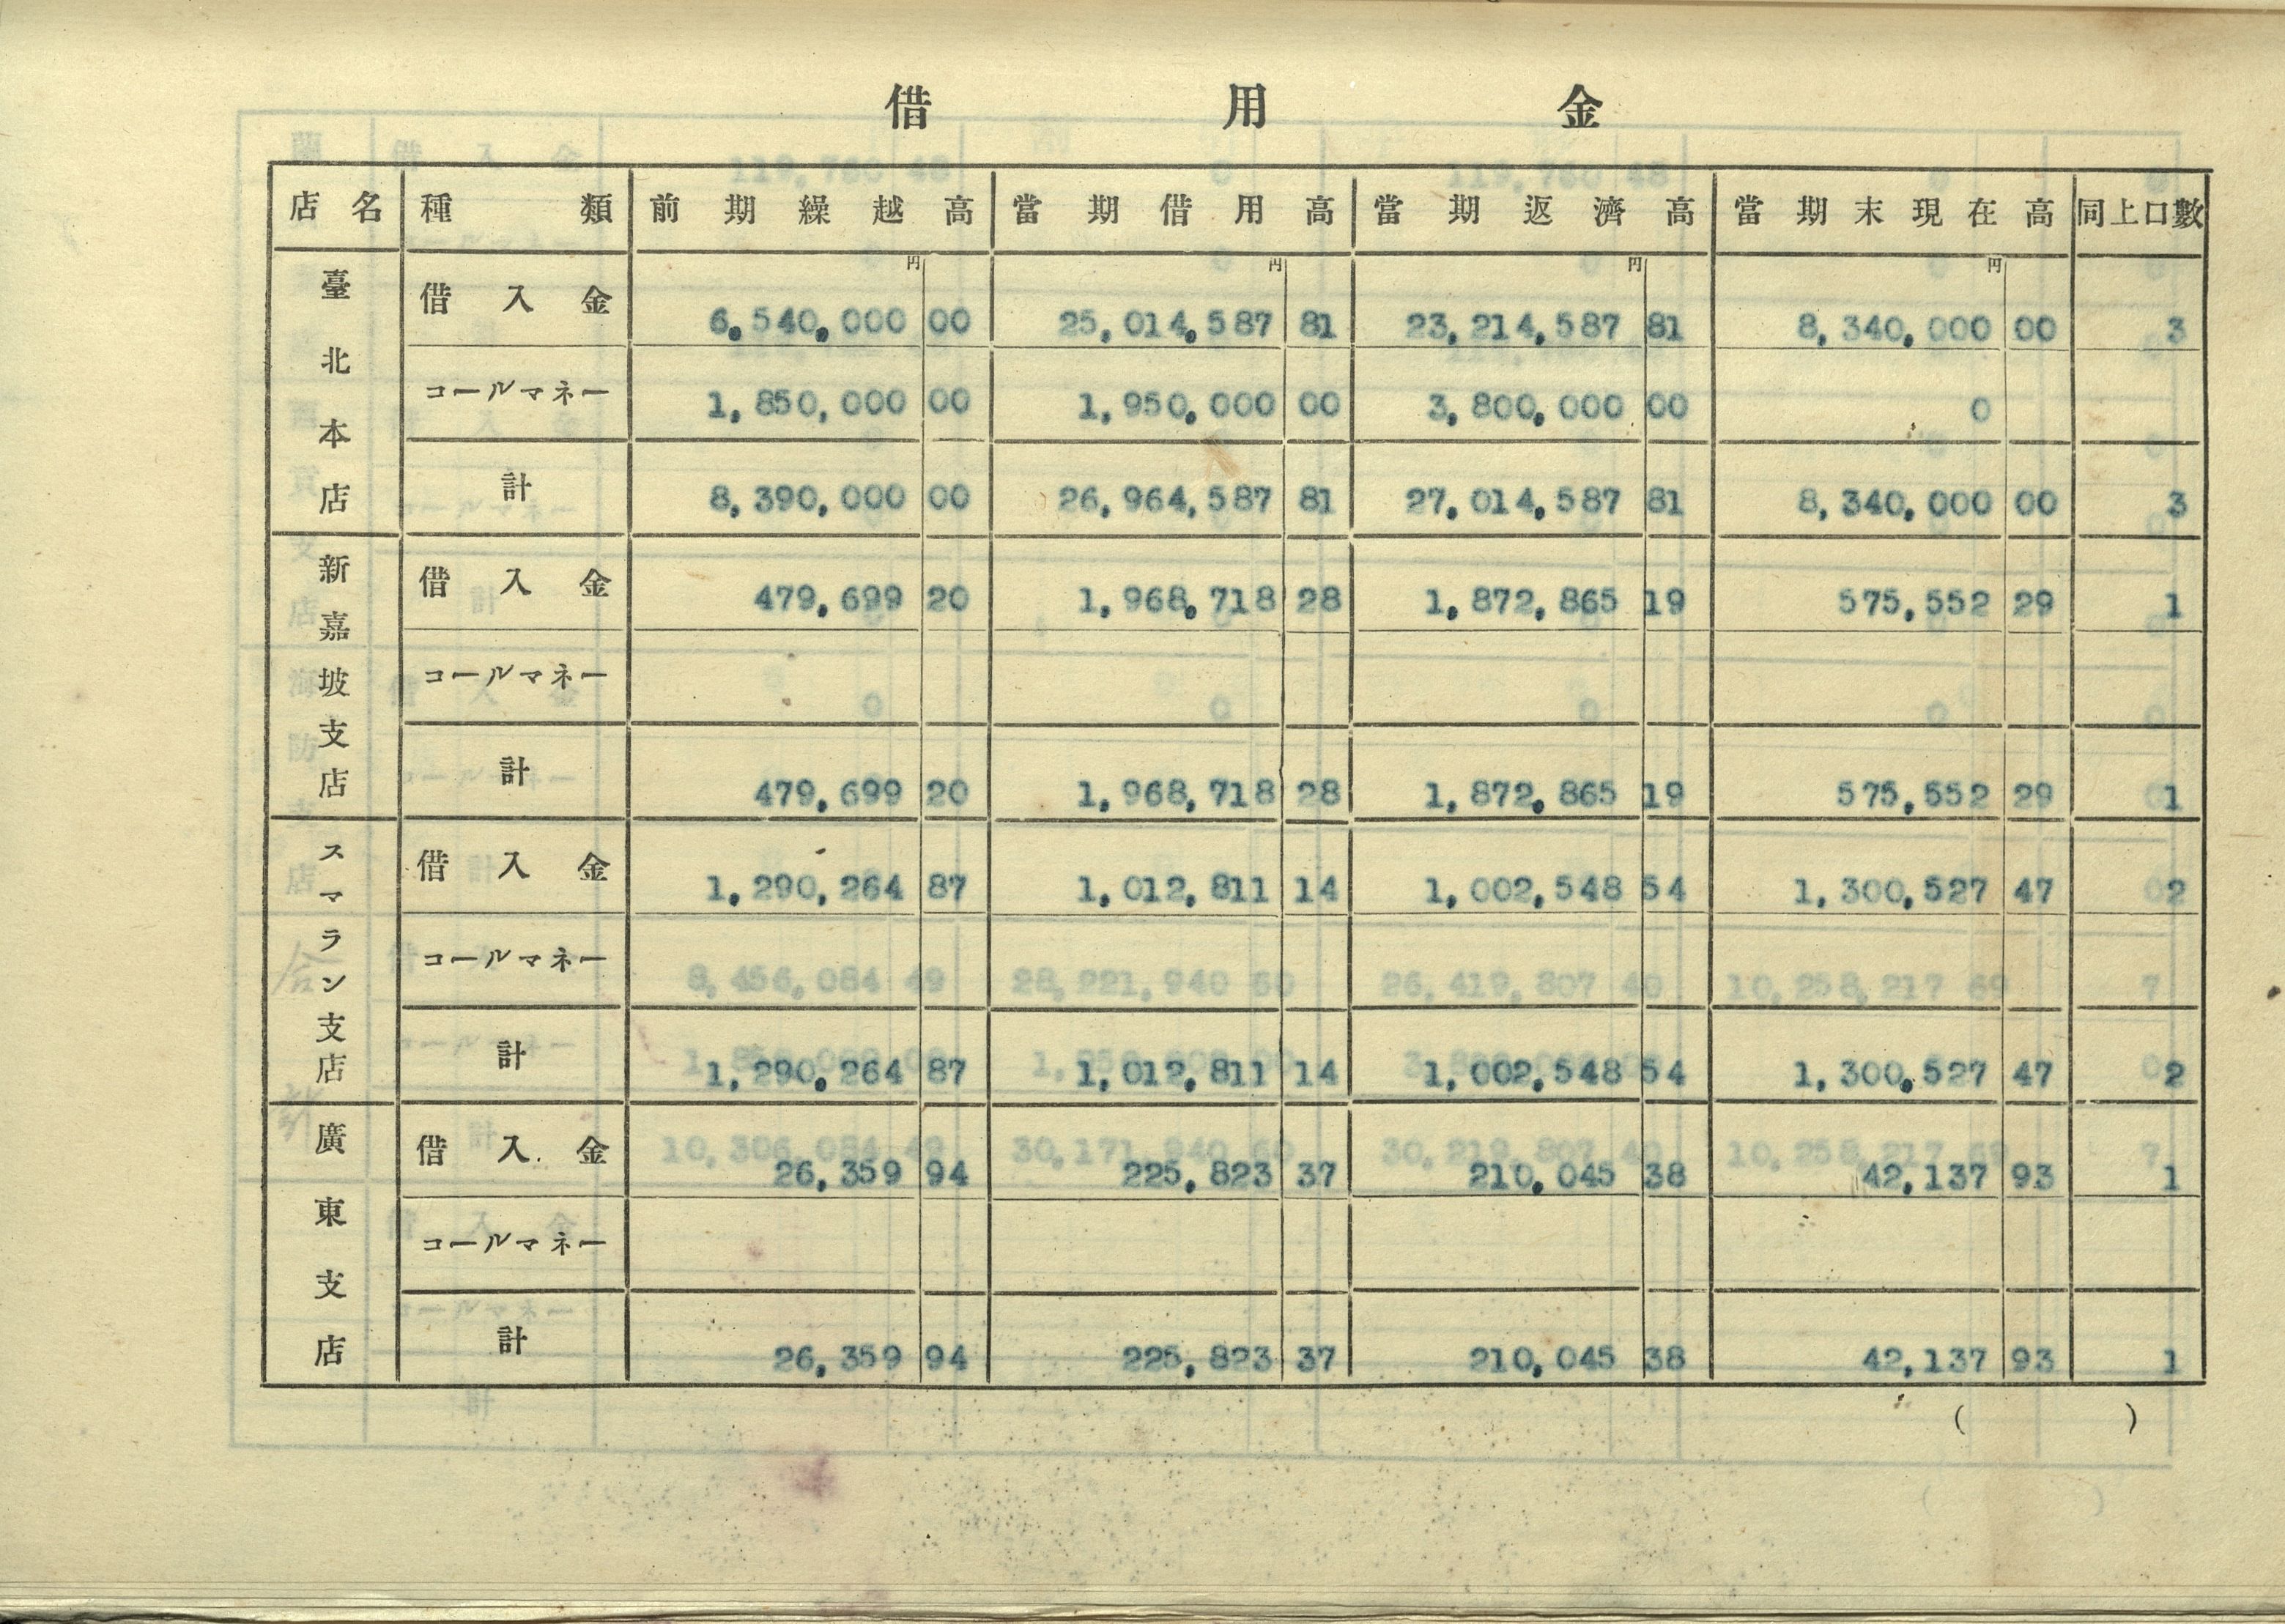 借用金
店名 種類 前期繰越高 當期借用高 當期返濟高 當期末現在高 同上口數
円 円 円 円
臺北本店
借入金 6,540,000 00 25,014,587 81 23,214,587 81 8,340,000 00 3
コールマネー 1,850,000 00 1,950,000 00 3,800,000 00 0
計 8,390,000 00 26,964,587 81 27,014,587 81 8,340,000 00 3
新嘉坡支店
借入金 479,699 20 1,968,718 28 1,872,865 19 575,552 29 1
コールマネー
計 479,699 20 1,968,718 28 1,872,865 19 575,552 29 1
スマラン支店
借入金 1,290,264 87 1,012,811 14 1,002,548 54 1,300,527 47 2
コールマネー
計 1,290,264 87 1,012,811 14 1,002,548 54 1,300,527 47 2
廣東支店
借入金 26,359 94 225,823 37 210,045 38 42,137 93 1
コールマネー
計 26,359 94 225,823 37 210,045 38 42,137 93 1
( )